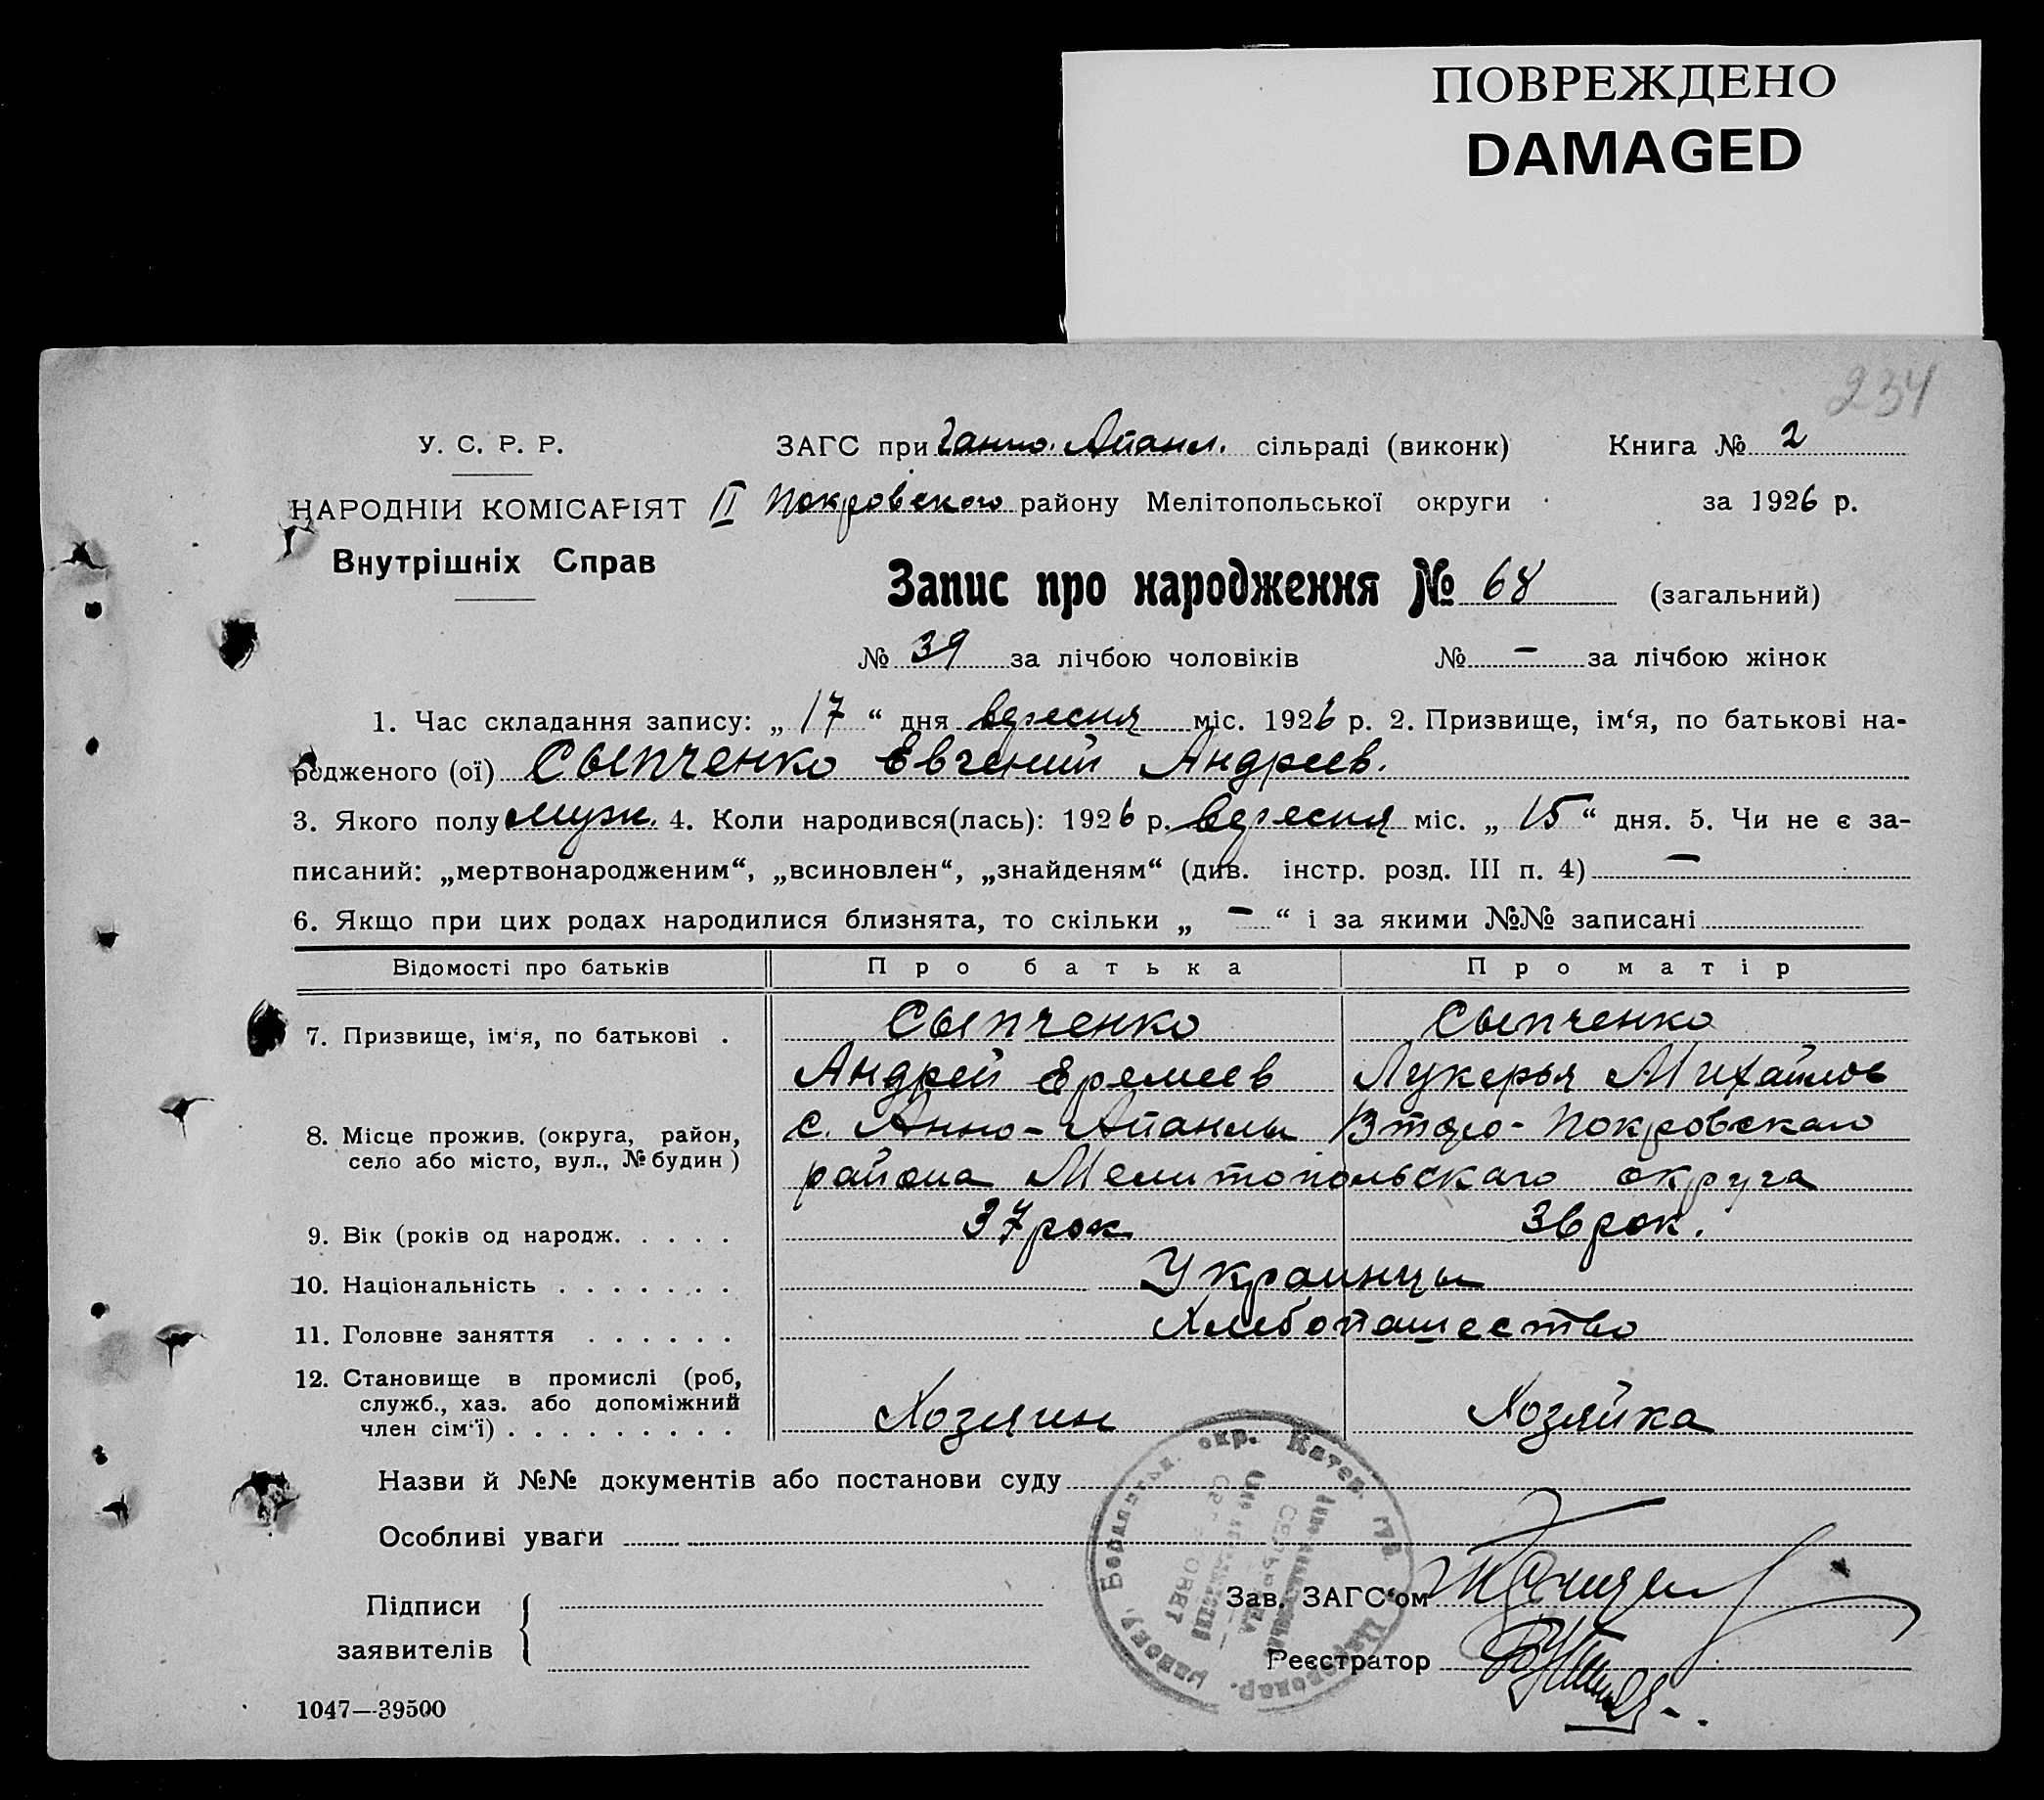 ПОВРЕЖДЕНО
DAMAGED
234
У. С. Р. Р.
ЗАГС при Ганно. Апанл. сільраді (виконк) Книга № 2
НАРОДНІЙ КОМІСАРІЯТ II Покровского району Мелітопольської округи за 1926 р.
Внутрішніх Справ
Запис про народження № 68 (загальний)
№ 39 за лічбою чоловіків № - за лічбою жінок
1. Час складання запису: „ 17 “ дня вересня міс. 1926 р. 2. Призвище, ім‘я, по батькові на-
родженого (ої) Сыпченко Евгений Андреев.
3. Якого полу муж. 4. Коли народився(лась): 1926 р. вересня міс. „ 15 “ дня. 5. Чи не є за-
писаний: „мертвонародженим“, „всиновлен“, „знайденям“ (див. інстр. розд. III п. 4) -
6. Якщо при цих родах народилися близнята, то скільки „ - “ і за якими №№ записані
Відомості про батьків Про батька Про матір
7. Призвище, ім‘я, по батькові . Сыпченко Сыпченко
Андрей Еремеев Лукерья Михайлов
8. Місце прожив. (округа, район, с. Анно-Апанлы Второ-Покровскаго
село або місто, вул., № будин) района Мелитопольскаго округа
9. Вік (років од народж. . . . . 37 рок 36 рок.
10. Національність . . . . . . . Украинцы
11. Головне заняття . . . . . . Хлебопашество
12. Становище в промислі (роб,
служб., хаз. або допоміжний
член сім‘ї) . . . . . . . . . Хозяин Хозяйка
Назви й №№ документів або постанови суду
Особливі уваги
Підписи
заявителів
Зав. ЗАГС‘ом
Реєстратор
1047—39500